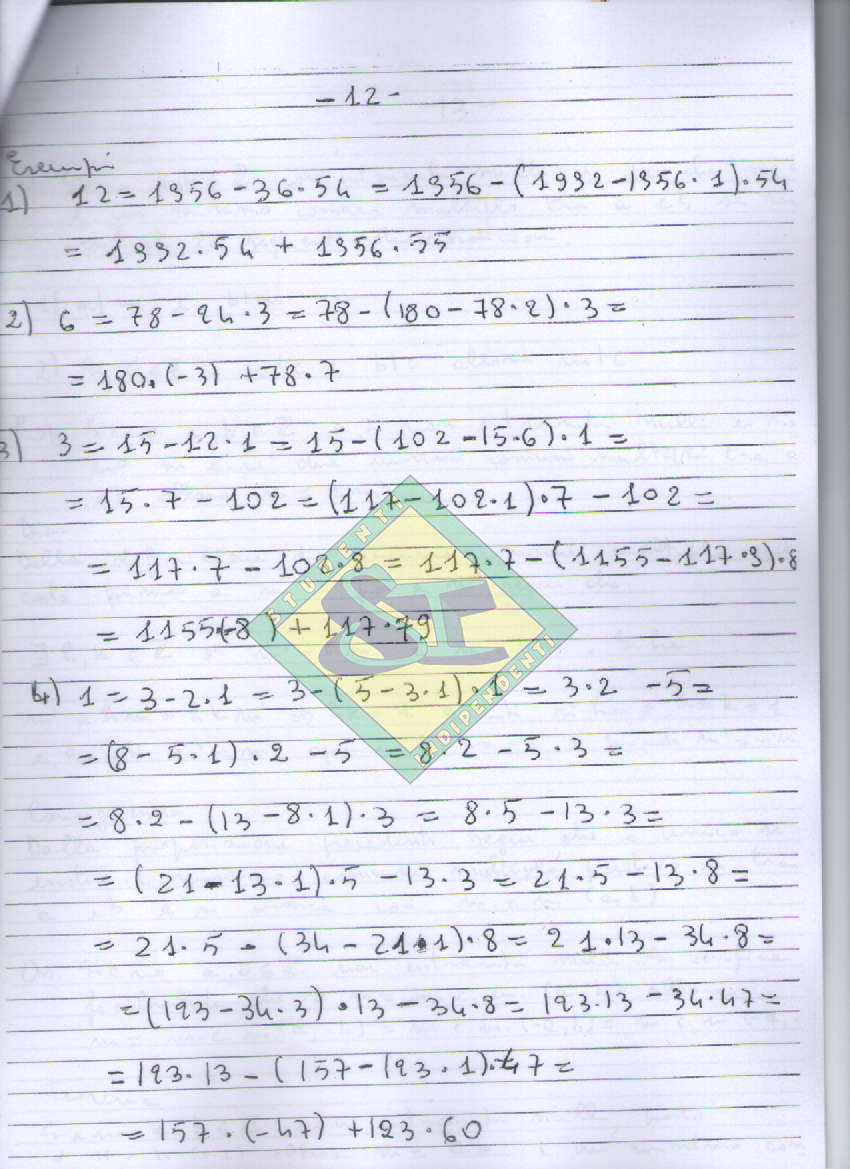 - 12 -
Esempi
1) 12 = 1356 - 36·54 = 1356 - (1992 - 1956·1)·54
= 1992·54 + 1356·55
2) 6 = 78 - 24·3 = 78 - (180 - 78·2)·3 =
= 180·(-3) + 78·7
3) 3 = 15 - 12·1 = 15 - (102 - 15·6)·1 =
= 15·7 - 102 = (117 - 102·1)·7 - 102 =
= 117·7 - 102·8 = 117·7 - (1155 - 117·9)·8
= 1155(-8) + 117·79
4) 1 = 3 - 2·1 = 3 - (5 - 3·1)·1 = 3·2 - 5 =
= (8 - 5·1)·2 - 5 = 8·2 - 5·3 =
= 8·2 - (13 - 8·1)·3 = 8·5 - 13·3 =
= (21 - 13·1)·5 - 13·3 = 21·5 - 13·8 =
= 21·5 - (34 - 21·1)·8 = 21·13 - 34·8 =
= (123 - 34·3)·13 - 34·8 = 123·13 - 34·47 =
= 123·13 - (157 - 123·1)·47 =
= 157·(-47) + 123·60
STUDENTI
SI
INDIPENDENTI